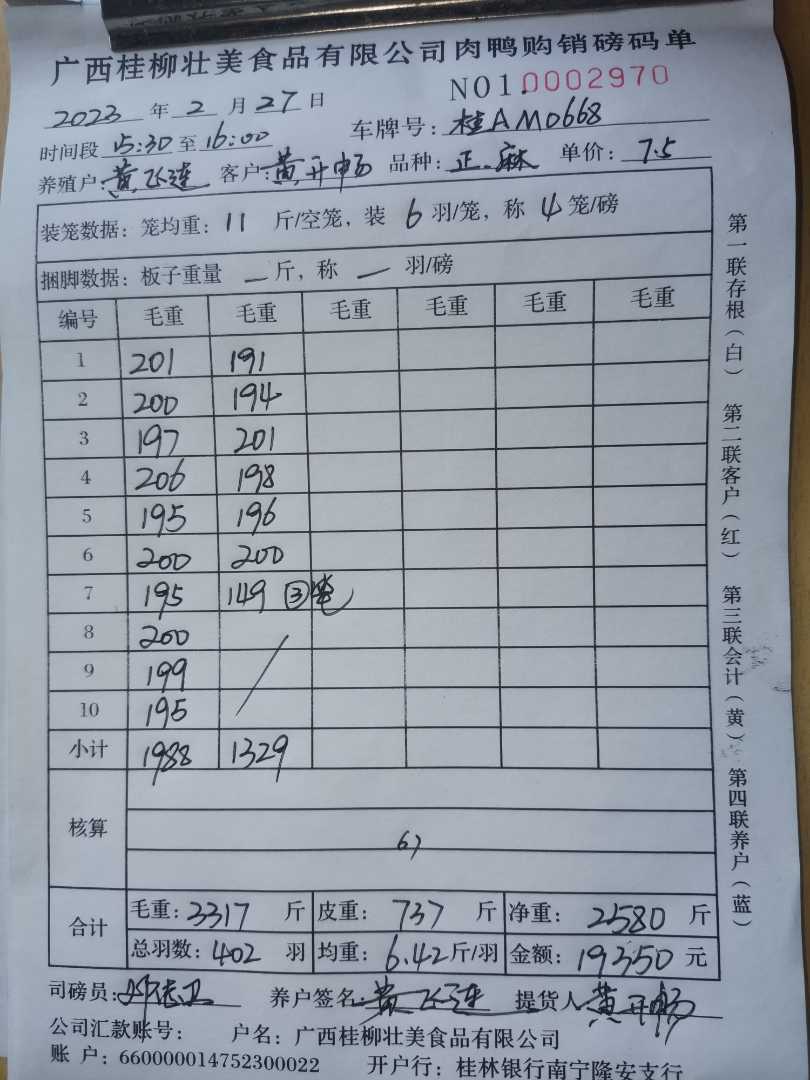 广西桂柳壮美食品有限公司肉鸭购销磅码单
NO1.0002970
2023 年 2 月 27 日
时间段 15:30 至 16:00 车牌号: 桂AM0668
养殖户: 黄飞连 客户: 黄开畅 品种: 正.麻 单价: 7.5
装笼数据: 笼均重: 11 斤/空笼, 装 6 羽/笼, 称 4 笼/磅
捆脚数据: 板子重量 — 斤, 称 — 羽/磅
编号 毛重 毛重 毛重 毛重 毛重 毛重
1 201 191
2 200 194
3 197 201
4 206 198
5 195 196
6 200 200
7 195 149 ③笼
8 200
9 199
10 195
小计 1988 1329
核算
67
合计
毛重: 3317 斤 皮重: 737 斤 净重: 2580 斤
总羽数: 402 羽 均重: 6.42 斤/羽 金额: 19350 元
司磅员: 养户签名: 黄飞连 提货人 黄开畅
公司汇款账号: 户名: 广西桂柳壮美食品有限公司
账 户: 660000014752300022 开户行: 桂林银行南宁隆安支行
第一联存根(白) 第二联客户(红) 第三联会计(黄) 第四联养户(蓝)